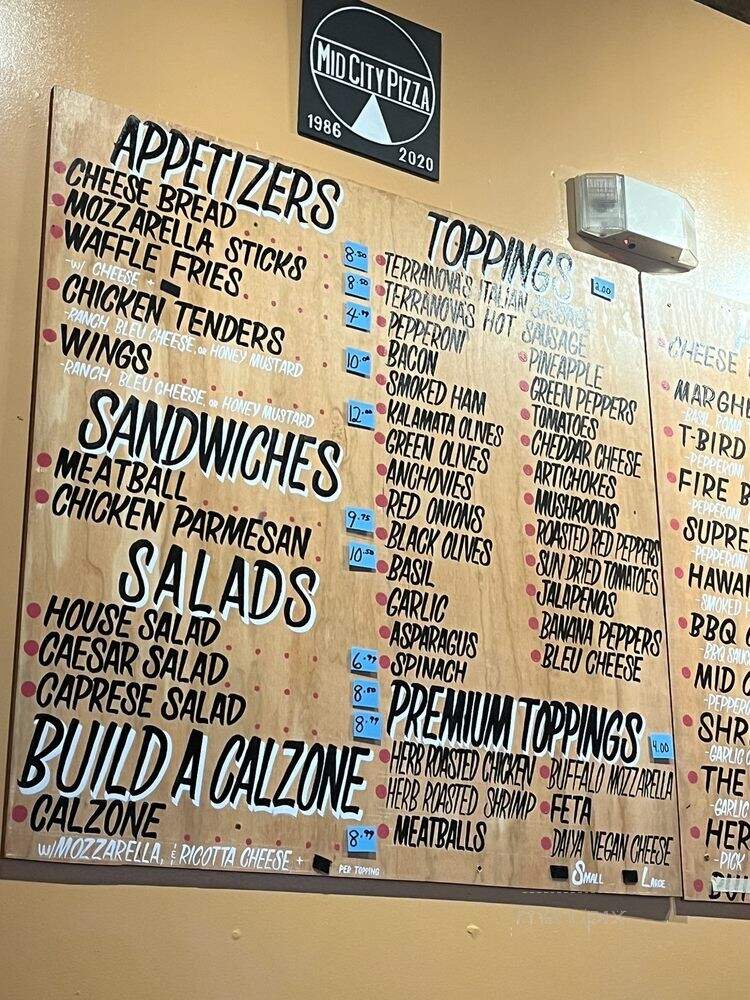 MID CITY PIZZA
1986
2020
APPETIZERS
CHEESE BREAD 8.50
MOZZARELLA STICKS 8.50
WAFFLE FRIES 4.99
-W/ CHEESE +
CHICKEN TENDERS 10.00
-RANCH, BLEU CHEESE, OR HONEY MUSTARD
WINGS 12.00
-RANCH, BLEU CHEESE, OR HONEY MUSTARD
SANDWICHES
MEATBALL 9.75
CHICKEN PARMESAN 10.50
SALADS
HOUSE SALAD 6.99
CAESAR SALAD 8.50
CAPRESE SALAD 8.99
BUILD A CALZONE
CALZONE 8.99
W/MOZZARELLA, & RICOTTA CHEESE +
PER TOPPING
TOPPINGS 2.00
TERRANOVA'S ITALIAN SAUSAGE
TERRANOVA'S HOT SAUSAGE
PEPPERONI
BACON
SMOKED HAM
KALAMATA OLIVES
GREEN OLIVES
ANCHOVIES
RED ONIONS
BLACK OLIVES
BASIL
GARLIC
ASPARAGUS
SPINACH
PINEAPPLE
GREEN PEPPERS
TOMATOES
CHEDDAR CHEESE
ARTICHOKES
MUSHROOMS
ROASTED RED PEPPERS
SUN DRIED TOMATOES
JALAPENOS
BANANA PEPPERS
BLEU CHEESE
PREMIUM TOPPINGS 4.00
HERB ROASTED CHICKEN
HERB ROASTED SHRIMP
MEATBALLS
BUFFALO MOZZARELLA
FETA
DAIYA VEGAN CHEESE
SMALL LARGE
CHEESE
MARGH
-BASIL, ROMA
T-BIRD
-PEPPERONI
FIRE B
-PEPPERONI
SUPRE
-PEPPERONI
HAWAI
-SMOKED
BBQ
-BBQ SAUC
MID C
-PEPPERO
SHR
-GARLIC
THE
-GARLIC
HER
-PICK